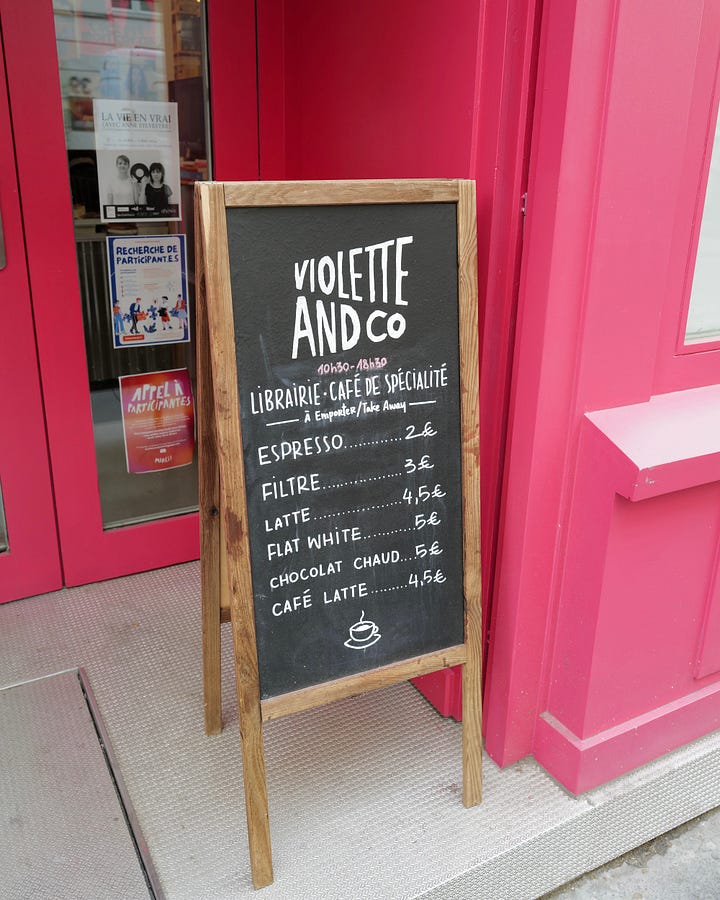 LA VIE EN VRAI
(AVEC ANNE SYLVESTRE)
RECHERCHE DE
PARTICIPANT.E.S
APPEL À
PARTICIPANTES
MERCI!
VIOLETTE
AND CO
10h30-18h30
LIBRAIRIE·CAFÉ DE SPÉCIALITÉ
À Emporter/Take Away
ESPRESSO..............2€
FILTRE..................3€
LATTE...................4,5€
FLAT WHITE...........5€
CHOCOLAT CHAUD...5€
CAFÉ LATTE........4,5€